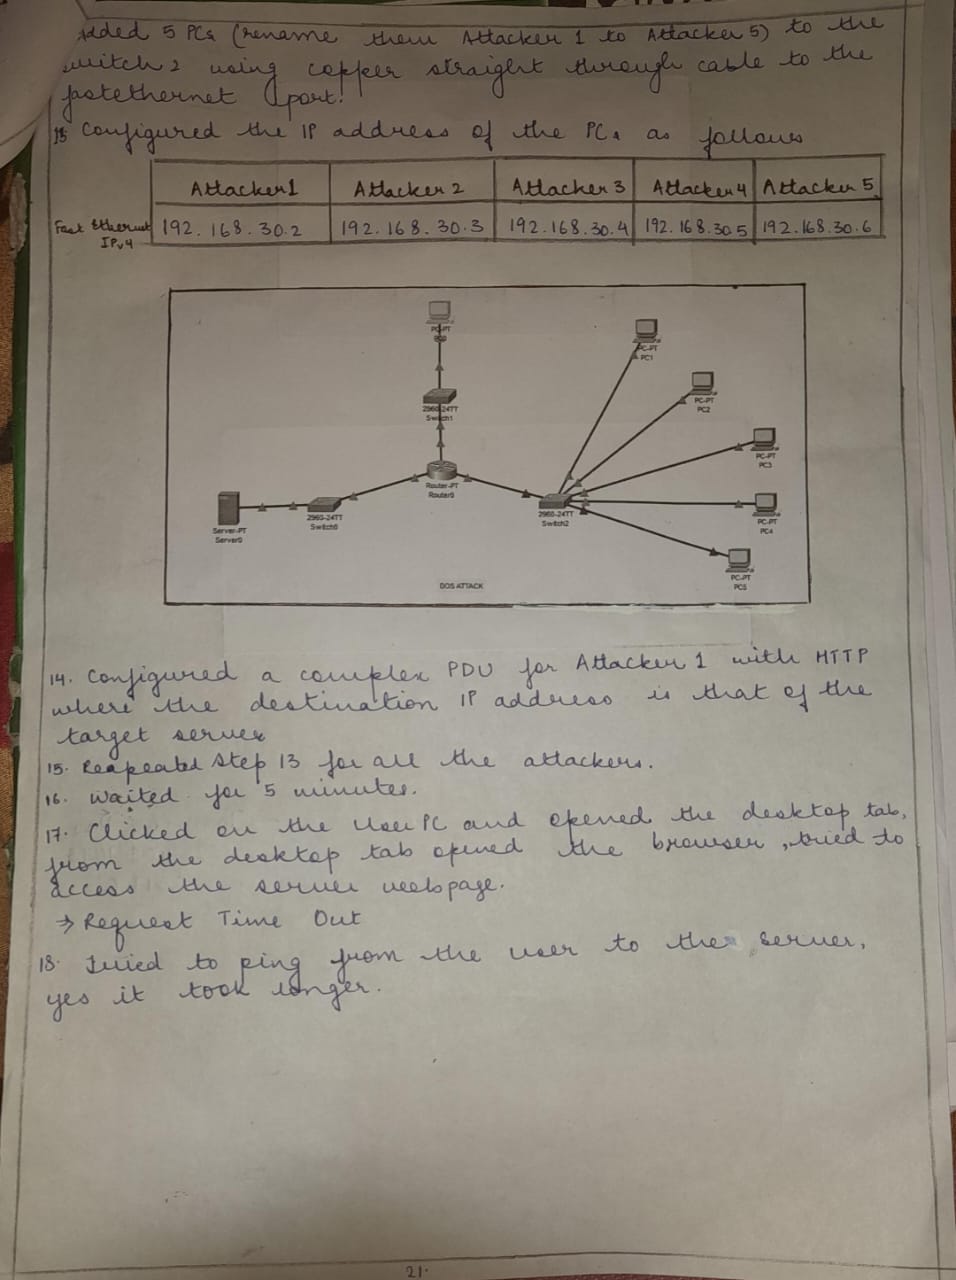 Added 5 PCs (rename them Attacker 1 to Attacker 5) to the
switch 2 using copper straight through cable to the
fastethernet port.
Configured the IP address of the PCs as follows
Attacker 1 Attacker 2 Attacker 3 Attacker 4 Attacker 5
Fast Ethernet IPv4 192.168.30.2 192.168.30.3 192.168.30.4 192.168.30.5 192.168.30.6
PC-PT
PC-PT
PC1
PC-PT
PC2
2960-24TT
Switch1
PC-PT
PC3
Router-PT
Router0
2960-24TT
Switch0
2960-24TT
Switch2
PC-PT
PC4
Server-PT
Server0
PC-PT
PC5
DOS ATTACK
14. Configured a complex PDU for Attacker 1 with HTTP
where the destination IP address is that of the
target server
15. Reapeated Step 13 for all the attackers.
16. Waited for 5 minutes.
17. Clicked on the User PC and opened the desktop tab,
from the desktop tab opened the browser, tried to
access the server webpage.
→ Request Time Out
18. Tried to ping from the user to the server,
yes it took longer.
21.